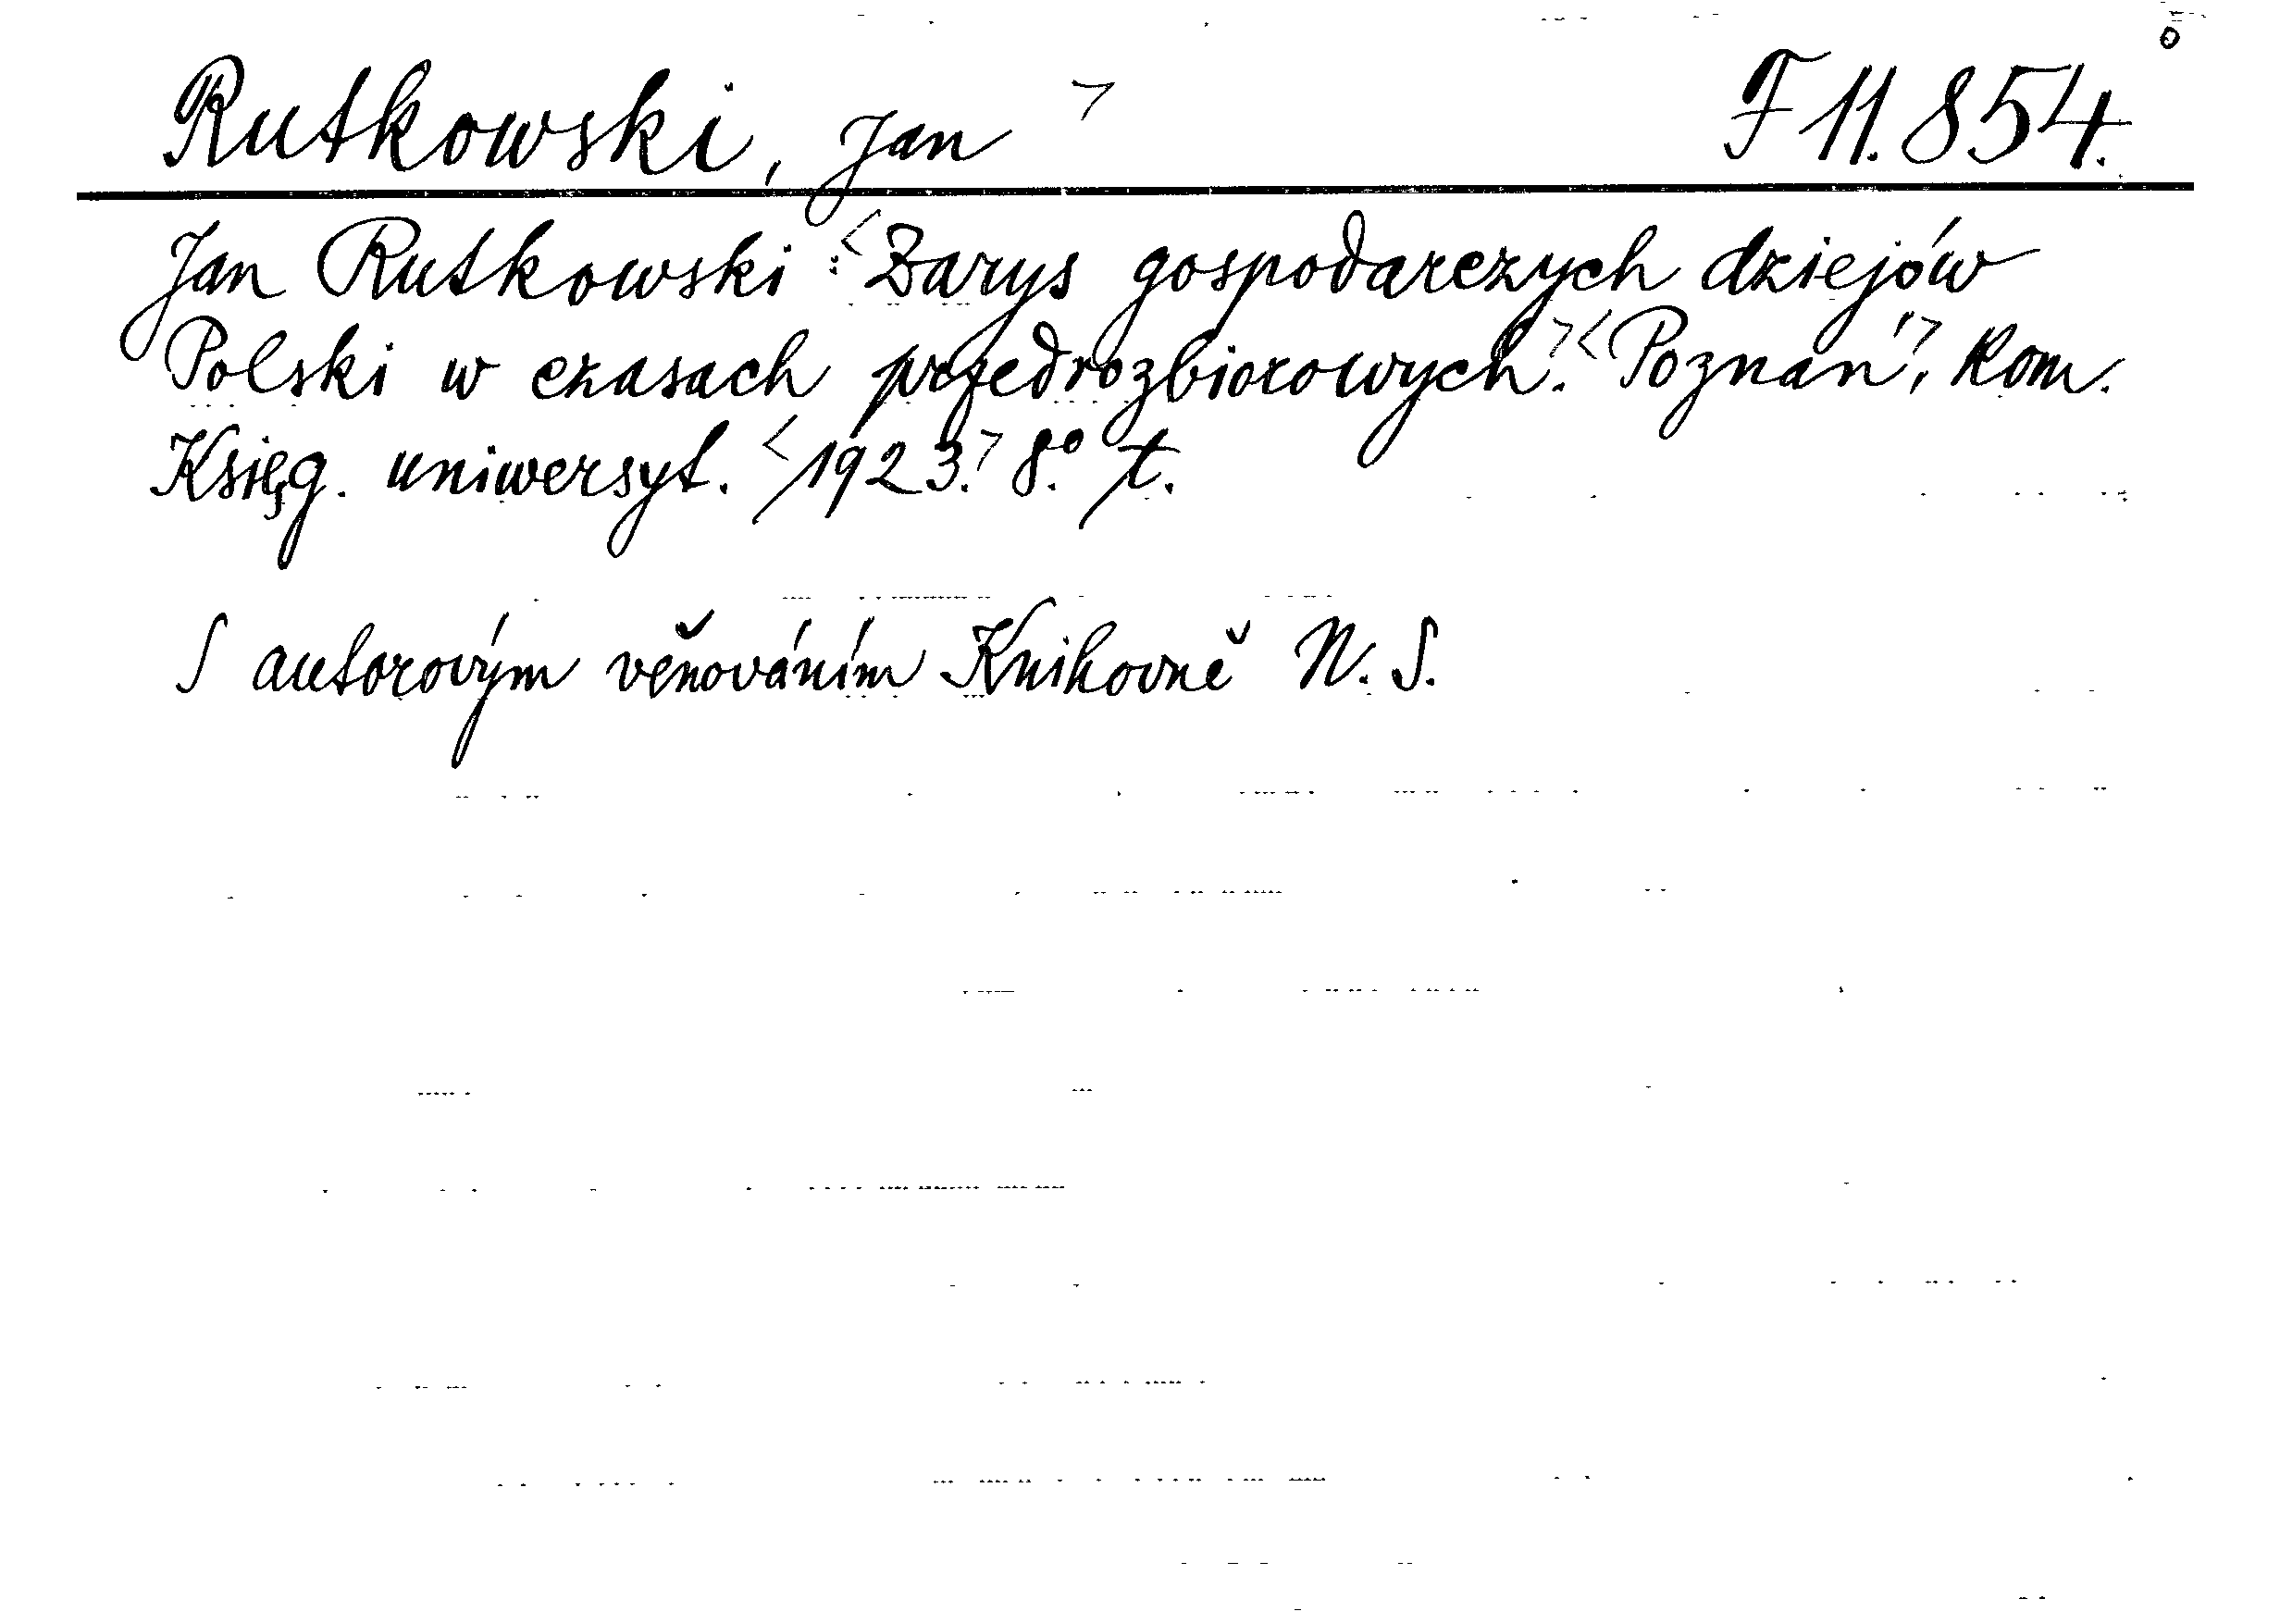 Rutkowski, Jan > F 11.854.
Jan Rutkowski : <Zarys gospodarczych dziejów
Polski w czasach przedrozbiorowych.> <Poznań>, Kom.
Księg. uniwersyt. <1923.> 8.° t.
S autorovým věnováním Knihovně N. S.